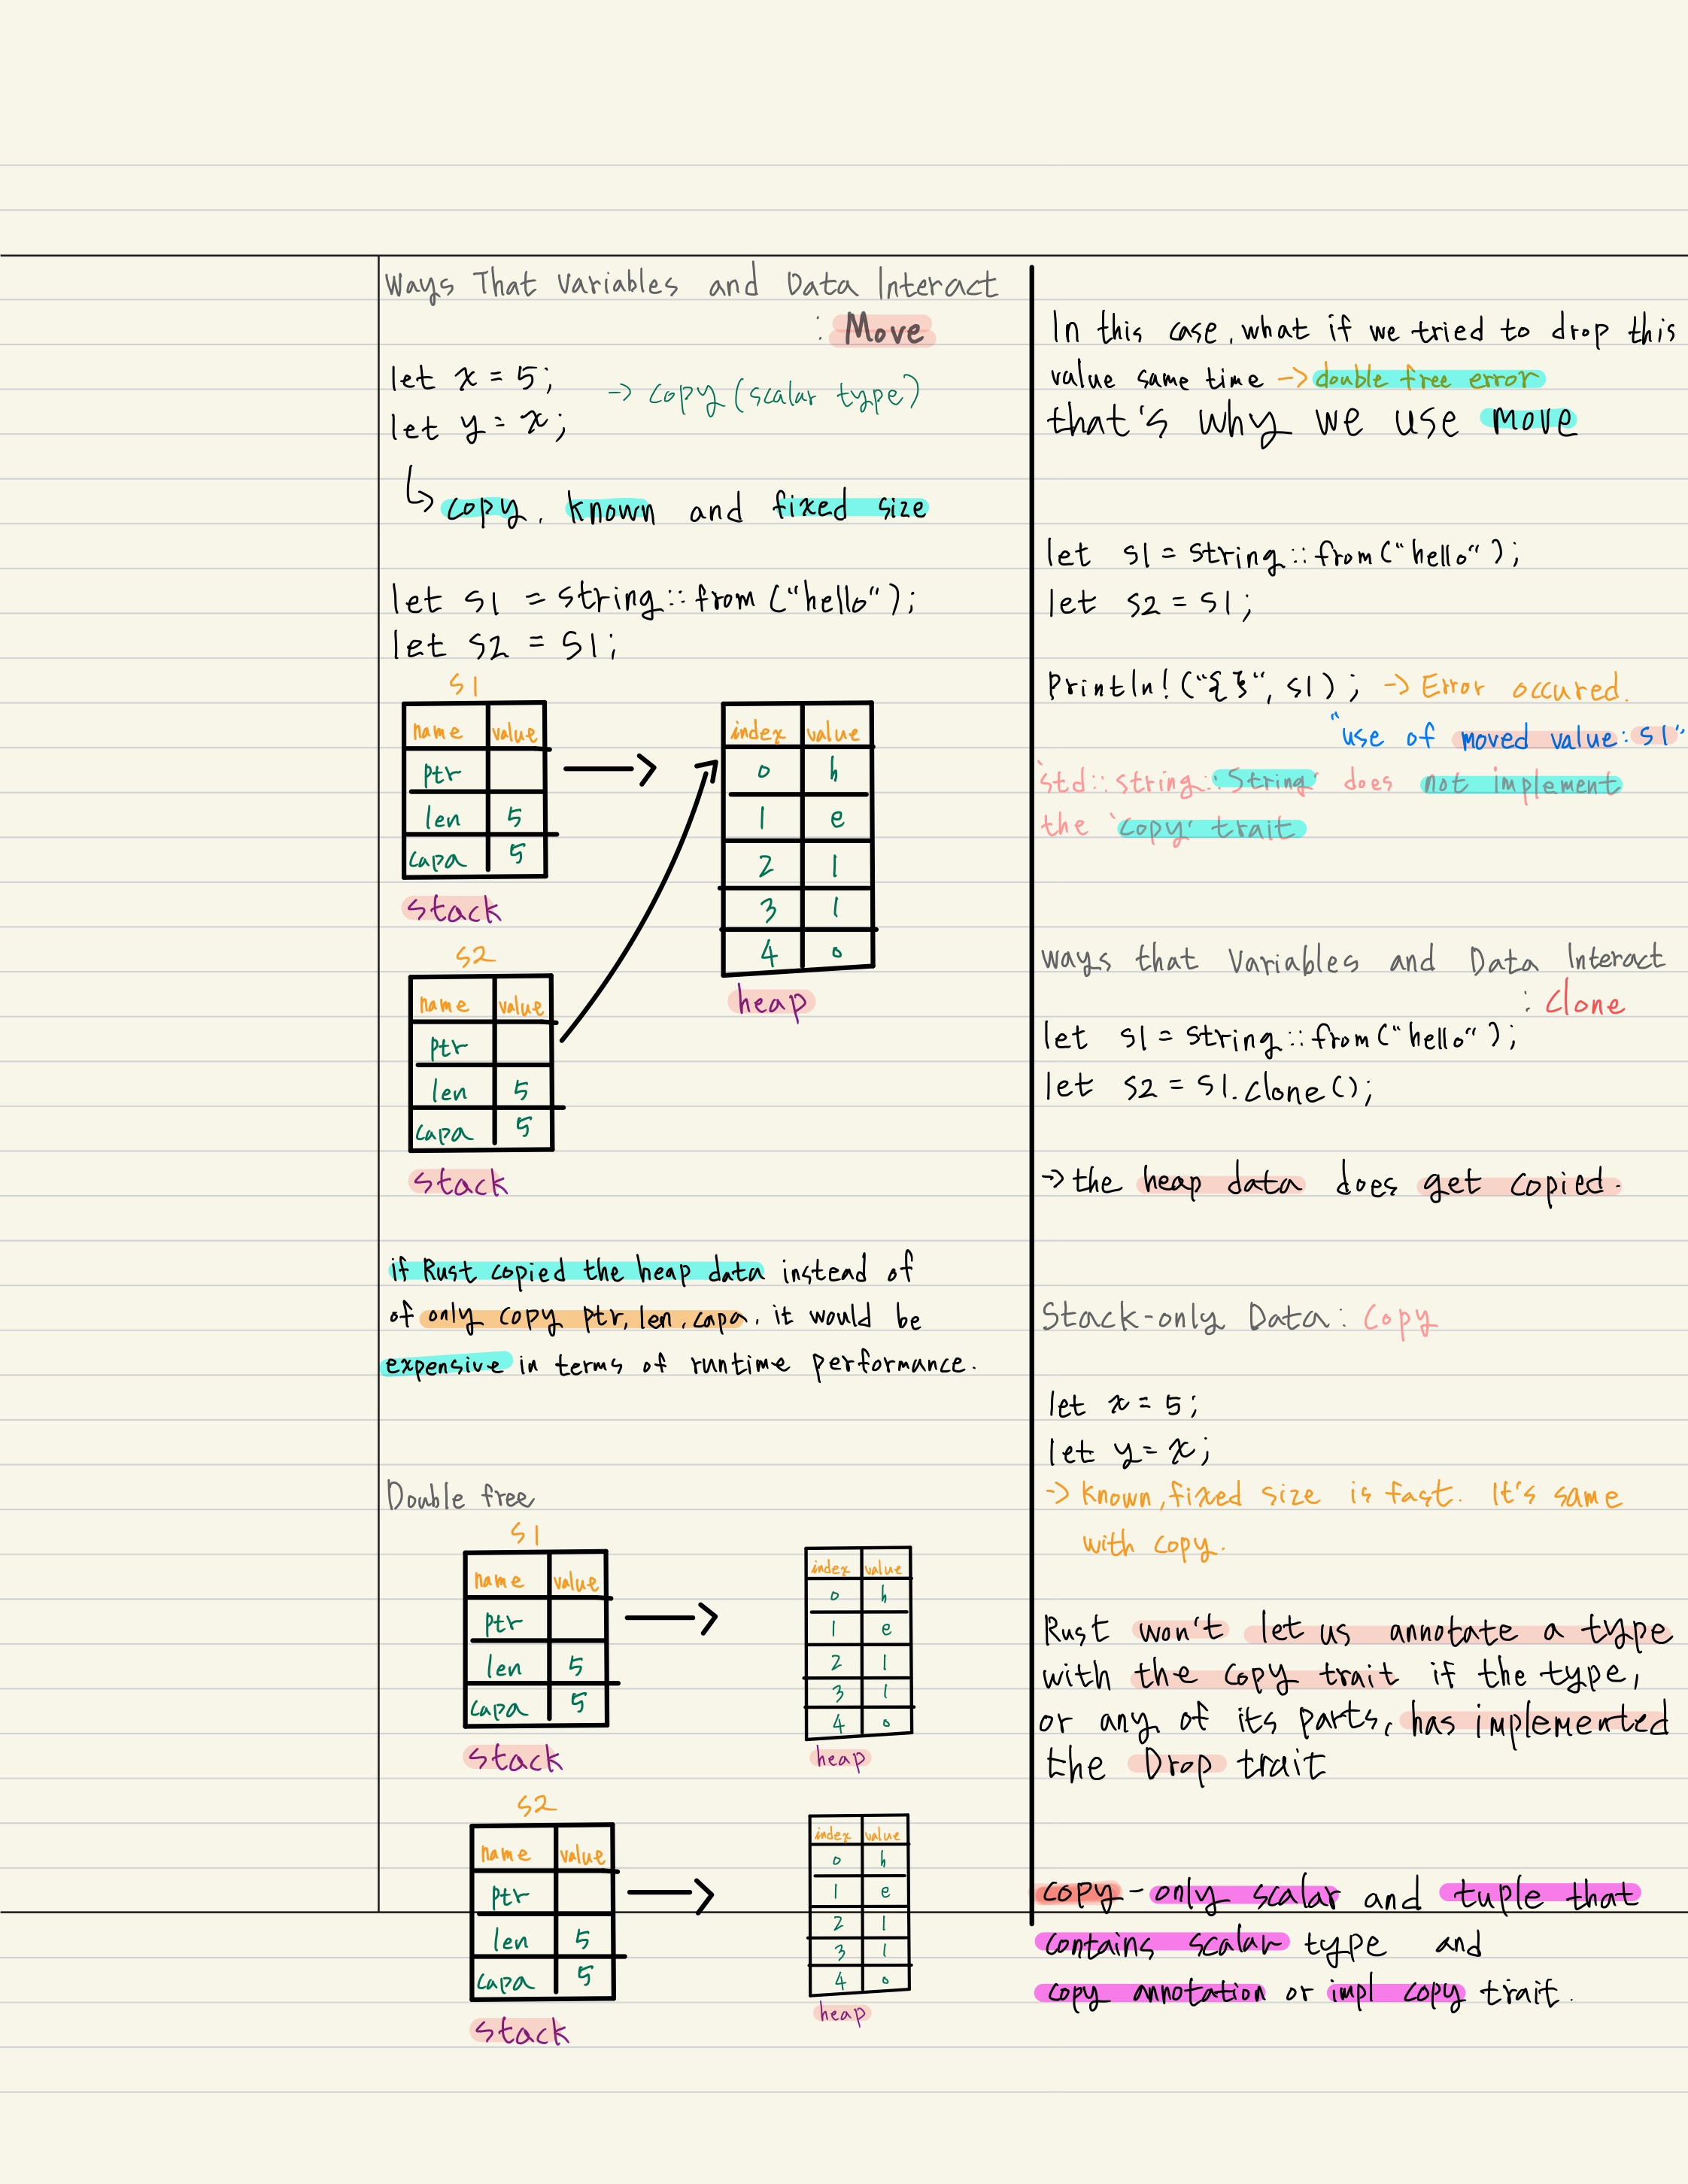 Ways That Variables and Data Interact
: Move
let x = 5;
let y = x;
-> copy (scalar type)
copy, known and fixed size
let s1 = string::from ("hello");
let s2 = s1;
s1
name value
ptr
len 5
capa 5
stack
index value
0 h
1 e
2 l
3 l
4 o
heap
s2
name value
ptr
len 5
capa 5
stack
if Rust copied the heap data instead of
of only copy ptr, len, capa, it would be
expensive in terms of runtime performance.
Double free
s1
name value
ptr
len 5
capa 5
stack
index value
0 h
1 e
2 l
3 l
4 o
heap
s2
name value
ptr
len 5
capa 5
stack
index value
0 h
1 e
2 l
3 l
4 o
heap
In this case, what if we tried to drop this
value same time -> double free error
that's why we use move
let s1 = string::from("hello");
let s2 = s1;
println!("{}", s1); -> Error occured.
"use of moved value: s1"
`std::string::String` does not implement
the `copy` trait
ways that Variables and Data Interact
: Clone
let s1 = string::from("hello");
let s2 = s1.clone();
-> the heap data does get copied.
Stack-only Data: Copy
let x = 5;
let y = x;
-> known, fixed size is fast. It's same
with copy.
Rust won't let us annotate a type
with the copy trait if the type,
or any of its parts, has implemented
the Drop trait
copy - only scalar and tuple that
contains scalar type and
copy annotation or impl copy trait.